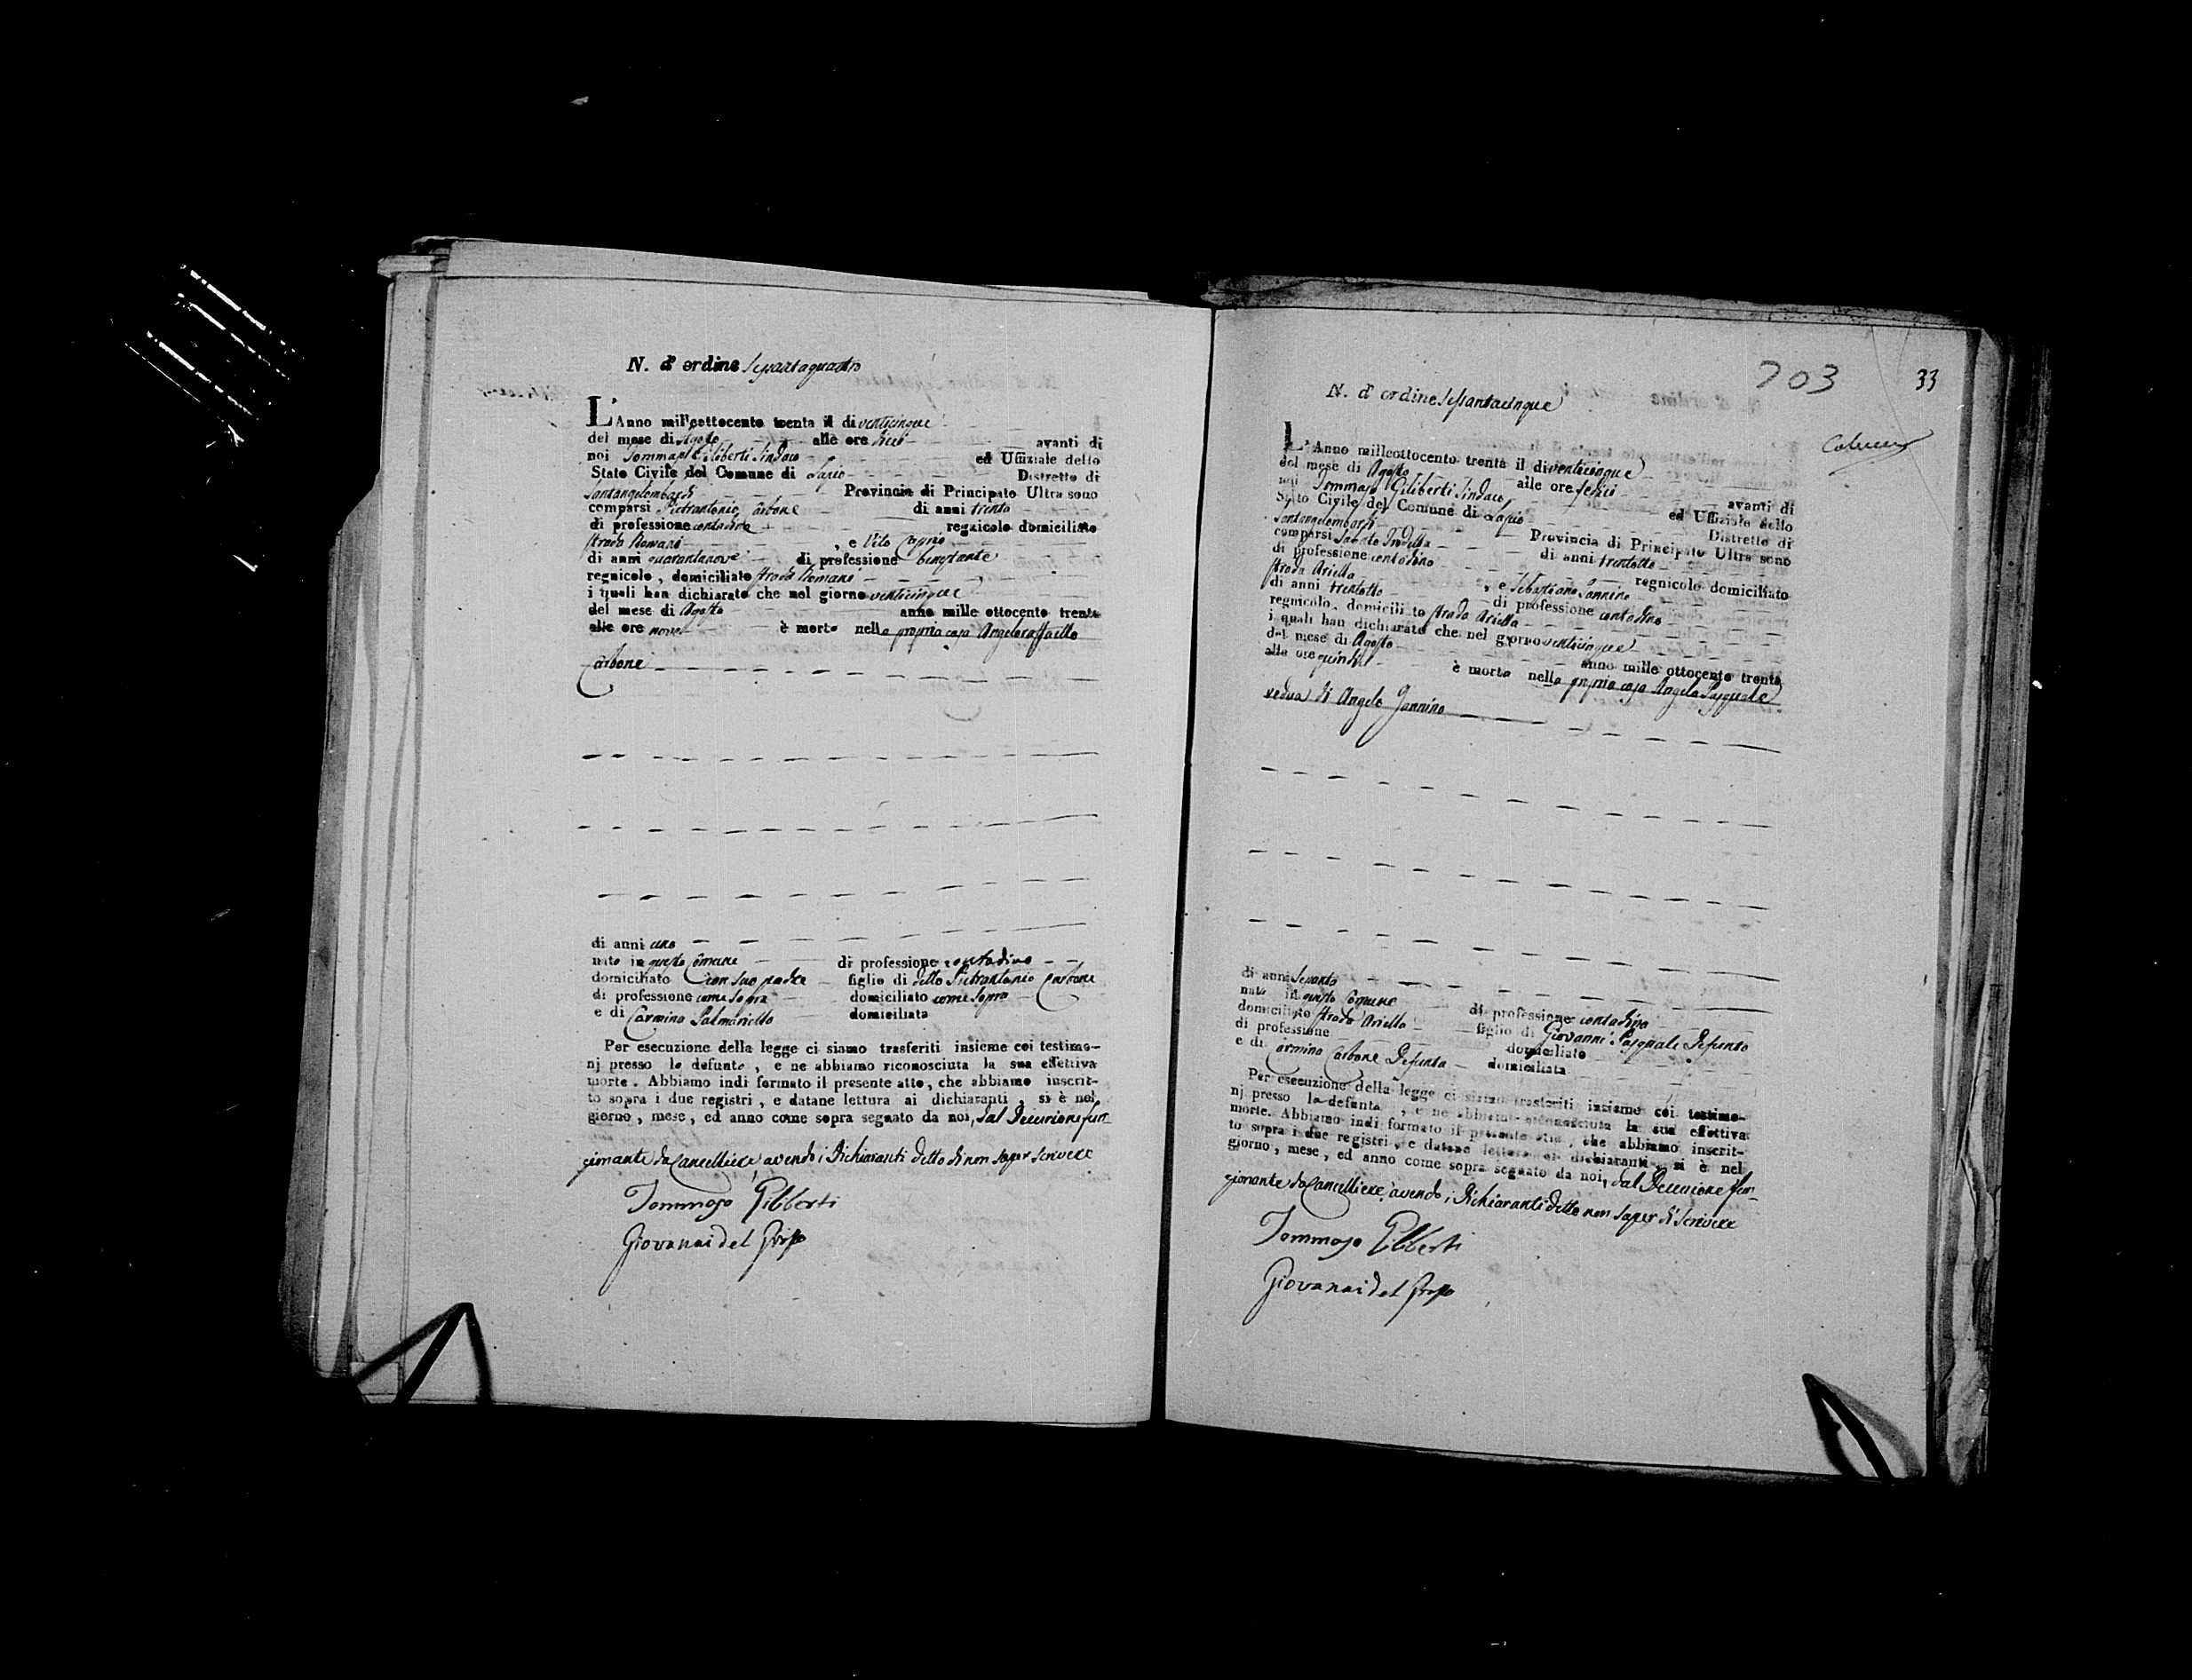 N. d'ordine Sessantaquattro
L'Anno milleottocento trenta il di venticinque
del mese di Agosto alle ore dieci avanti di
noi Tommaso Giliberti Sindaco ed Uffiziale dello
Stato Civile del Comune di Lapio Distretto di
Santangelombardi Provincia di Principato Ultra sono
comparsi Pietrantonio Carbone di anni trenta
di professione contadino regnicolo domiciliato
strada Romani , e Vito
di anni quarantanove di professione benestante
regnicolo, domiciliato strada Romani
i quali han dichiarato che nel giorno venticinque
del mese di Agosto anno mille ottocento trenta
alle ore nove è morto nella propria casa Angeloraffaello
Carbone
di anni uno
nato in questo Comune di professione contadino
domiciliato con suo padre figlio di detto Pietrantonio Carbone
di professione come sopra domiciliato come sopra
e di Carmina Palmariello domiciliata
Per esecuzione della legge ci siamo trasferiti insieme coi testimo-
nj presso lo defunto, e ne abbiamo riconosciuta la sua effettiva
morte. Abbiamo indi formato il presente atto, che abbiamo inscrit-
to sopra i due registri, e datane lettura ai dichiaranti, si è nel
giorno, mese, ed anno come sopra segnato da noi, dal Decurione fun-
zionante da Cancelliere avendo i Dichiaranti detto di non saper scrivere
Tommaso Giliberti
Giovanni del Grosso
703
33
N. d'ordine Sessantacinque
L'Anno milleottocento trenta il di venticinque
del mese di Agosto alle ore sedici avanti di
noi Tommaso Giliberti Sindaco ed Uffiziale dello
Stato Civile del Comune di Lapio Distretto di
Santangelombardi Provincia di Principato Ultra sono
comparsi Sabato di anni trentotto
di professione contadino regnicolo domiciliato
strada Ariella , e Sebastiano Jannino
di anni trentotto di professione contadino
regnicolo, domiciliato strada Ariella
i quali han dichiarato che nel giorno venticinque
del mese di Agosto anno mille ottocento trenta
alle ore quindici è morta nella propria casa Angela Pasquale
vedua di Angelo Jannino
di anni Settanta
nata in questo Comune di professione contadina
domiciliato strada Ariella figlio di Giovanni Pasquale Defunto
di professione domiciliato
e di Carmina Carbone Defunta domiciliata
Per esecuzione della legge ci siamo trasferiti insieme coi testimo-
nj presso la defunta, e ne abbiamo riconosciuta la sua effettiva
morte. Abbiamo indi formato il presente atto, che abbiamo inscrit-
to sopra i due registri, e datane lettura ai dichiaranti, si è nel
giorno, mese, ed anno come sopra segnato da noi, dal Decurione fun-
zionante da Cancelliere avendo i Dichiaranti detto non saper di scrivere
Tommaso Giliberti
Giovanni del Grosso